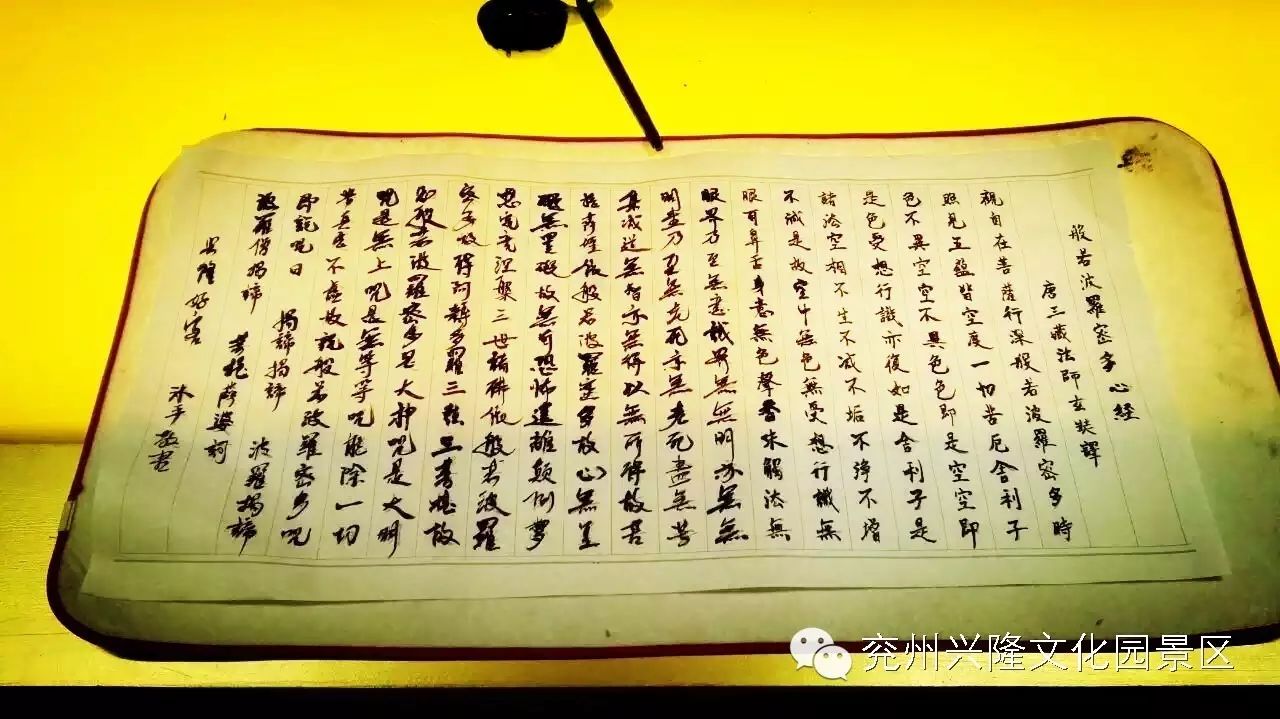 般若波羅密多心經
唐三藏法師玄奘譯
觀自在菩薩行深般若波羅密多時
照見五蘊皆空度一切苦厄舍利子
色不異空空不異色色即是空空即
是色受想行識亦復如是舍利子是
諸法空相不生不滅不垢不淨不增
不減是故空中無色無受想行識無
眼耳鼻舌身意無色聲香味觸法無
眼界乃至無意識界無無明亦無無
明盡乃至無老死亦無老死盡無苦
集滅道無智亦無得以無所得故菩
提薩埵依般若波羅蜜多故心無罣
礙無罣礙故無有恐怖遠離顛倒夢
想究竟涅槃三世諸佛依般若波羅
密多故得阿耨多羅三藐三菩提故
知般若波羅密多是大神呪是大明
呪是無上呪是無等等呪能除一切
苦真實不虛故說般若波羅密多呪
即說呪曰 揭諦揭諦 波羅揭諦
波羅僧揭諦 菩提薩婆訶
沐手敬書
兖州兴隆文化园景区